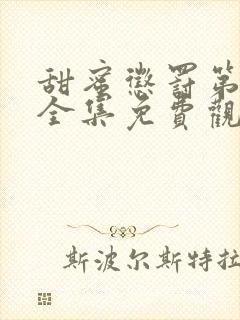 甜蜜懲罰第
全集免費觀
斯波尔斯特拉